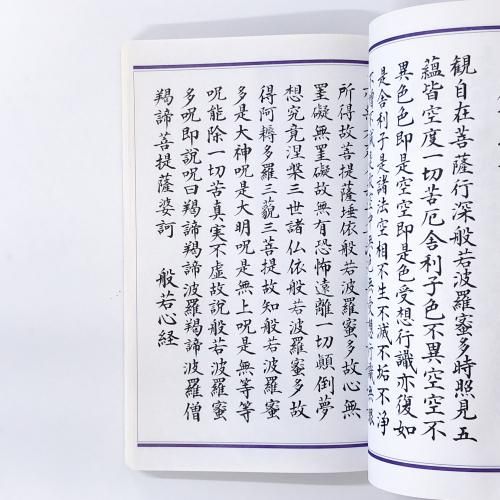 観自在菩薩行深般若波羅蜜多時照見五
蘊皆空度一切苦厄舎利子色不異空空不
異色色即是空空即是色受想行識亦復如
是舎利子是諸法空相不生不滅不垢不浄
所得故菩提薩埵依般若波羅蜜多故心無
罣礙無罣礙故無有恐怖遠離一切顛倒夢
想究竟涅槃三世諸仏依般若波羅蜜多故
得阿耨多羅三藐三菩提故知般若波羅蜜
多是大神呪是大明呪是無上呪是無等等
呪能除一切苦真実不虚故説般若波羅蜜
多呪即説呪曰羯諦羯諦波羅羯諦波羅僧
羯諦菩提薩婆訶　般若心経